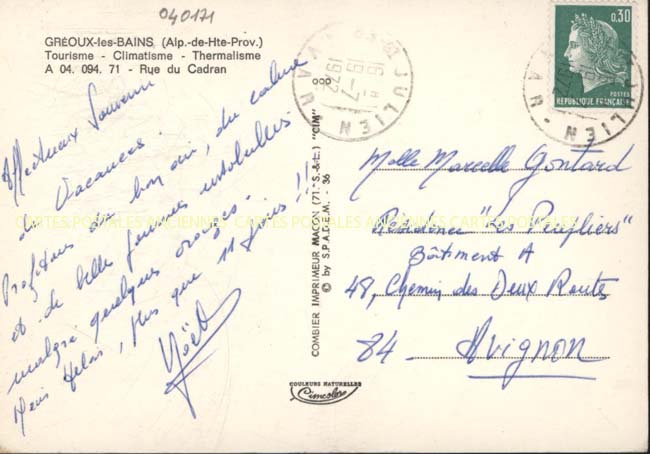 040171
GRÉOUX-les-BAINS (Alp.-de-Hte-Prov.)
Tourisme - Climatisme - Thermalisme
A 04. 094. 71 - Rue du Cadran
Affectueux Souvenir
de Vacances.
Profitons du bon air, du calme
et de belles journées ensoleillées
malgré quelques orages.
Mais hélas, plus que 11 jours !!
COMBIER IMPRIMEUR MACON (71. S.-&-L.) "CIM"
© by S.P.A.D.E.M. - 36
COULEURS NATURELLES
Cimcolor
0,30
POSTES
REPUBLIQUE FRANÇAISE
JULIEN
VAR
18-7
1972
JULIEN
VAR
Melle Marcelle Gontard
Résidence "Les Peupliers"
Bâtiment A
48, Chemin des Deux Routes
84 - Avignon
CARTES POSTALES ANCIENNES CARTES POSTALES ANCIENNES CARTES POSTALES ANCIENNES